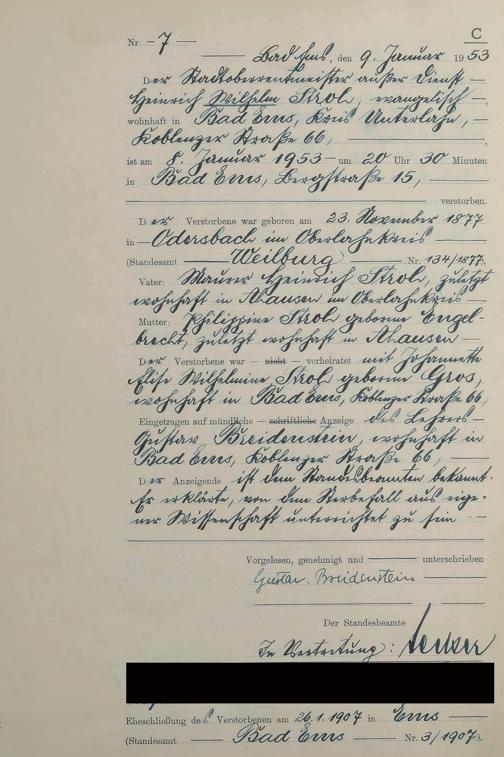 C
Nr. 7
Bad Ems, den 9. Januar 1953
Der Stadtoberrentmeister außer Dienst
Heinrich Wilhelm Strol, evangelisch
wohnhaft in Bad Ems, Kreis Unterlahn,
Koblenzer Straße 66,
ist am 8. Januar 1953 um 20 Uhr 30 Minuten
in Bad Ems, Bergstraße 15,
verstorben.
Der Verstorbene war geboren am 23. November 1877
in Odersbach im Oberlahnkreis
(Standesamt Weilburg Nr. 134/1877)
Vater: Maurer Heinrich Strol, zuletzt
wohnhaft in Ahausen im Oberlahnkreis
Mutter: Philippine Strol geborene Engel-
brecht, zuletzt wohnhaft in Ahausen
Der Verstorbene war nicht verheiratet mit Johannette
Elise Wilhelmine Strol geborene Gros,
wohnhaft in Bad Ems, Koblenzer Straße 66,
Eingetragen auf mündliche schriftliche Anzeige des Lehrers
Gustav Breidenstein, wohnhaft in
Bad Ems, Koblenzer Straße 66,
Der Anzeigende ist dem Standesbeamten bekannt.
Er erklärte, von dem Sterbefall aus eige-
ner Wissenschaft unterrichtet zu sein
Vorgelesen, genehmigt und unterschrieben
Gustav Breidenstein
Der Standesbeamte
In Vertretung:
Eheschließung des Verstorbenen am 26.1.1907 in Ems
(Standesamt Bad Ems Nr. 3/1907).